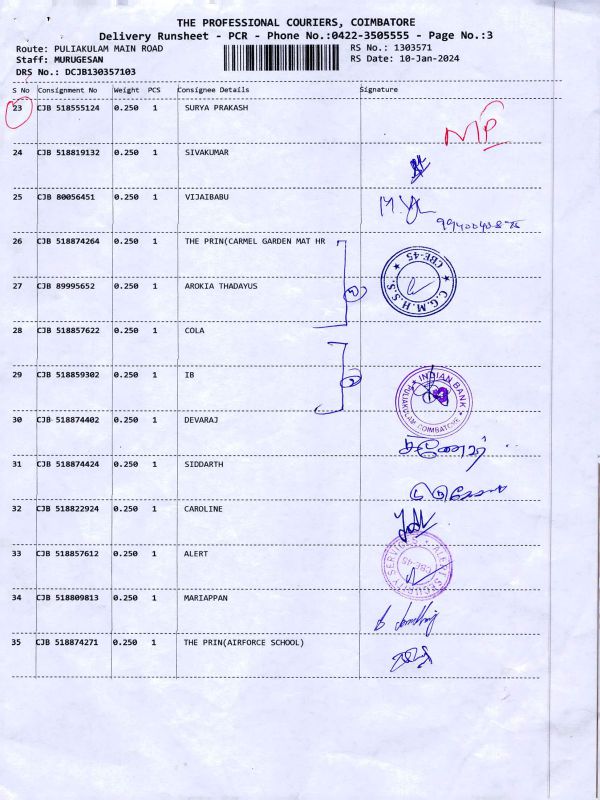 THE PROFESSIONAL COURIERS, COIMBATORE
Delivery Runsheet - PCR - Phone No.:0422-3505555 - Page No.:3
Route: PULIAKULAM MAIN ROAD RS No.: 1303571
Staff: MURUGESAN RS Date: 10-Jan-2024
DRS No.: DCJB130357103
S No Consignment No Weight PCS Consignee Details Signature
23 CJB 518555124 0.250 1 SURYA PRAKASH
24 CJB 518819132 0.250 1 SIVAKUMAR
25 CJB 80056451 0.250 1 VIJAIBABU
26 CJB 518874264 0.250 1 THE PRIN(CARMEL GARDEN MAT HR
CBE-45
C.G.M.H.S.S
27 CJB 89995652 0.250 1 AROKIA THADAYUS
28 CJB 518857622 0.250 1 COLA
29 CJB 518859302 0.250 1 IB
INDIAN BANK
PULIAKULAM COIMBATORE
30 CJB 518874402 0.250 1 DEVARAJ
31 CJB 518874424 0.250 1 SIDDARTH
32 CJB 518822924 0.250 1 CAROLINE
33 CJB 518857612 0.250 1 ALERT
ALERT SECURITY SERVICES
CBE-45
34 CJB 518809813 0.250 1 MARIAPPAN
35 CJB 518874271 0.250 1 THE PRIN(AIRFORCE SCHOOL)